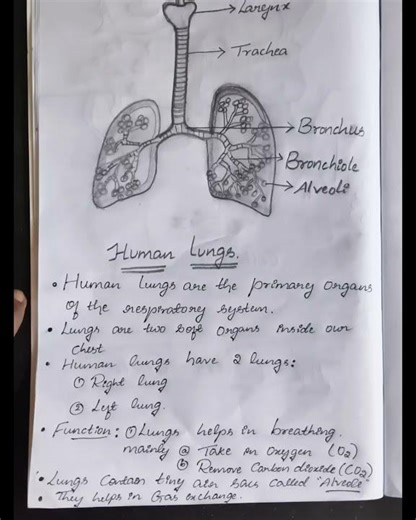 Larynx
Trachea
Bronchus
Bronchiole
Alveoli
Human Lungs.
• Human lungs are the primary organs
of the respiratory system.
• Lungs are two soft organs inside our
chest
• Human lungs have 2 lungs:
① Right lung
② Left lung.
• Function: ① Lungs helps in breathing.
mainly ⓐ Take in Oxygen (O2)
ⓑ Remove Carbon dioxide (CO2)
• Lungs Contain tiny air sacs called "Alveoli"
• They helps in Gas exchange.